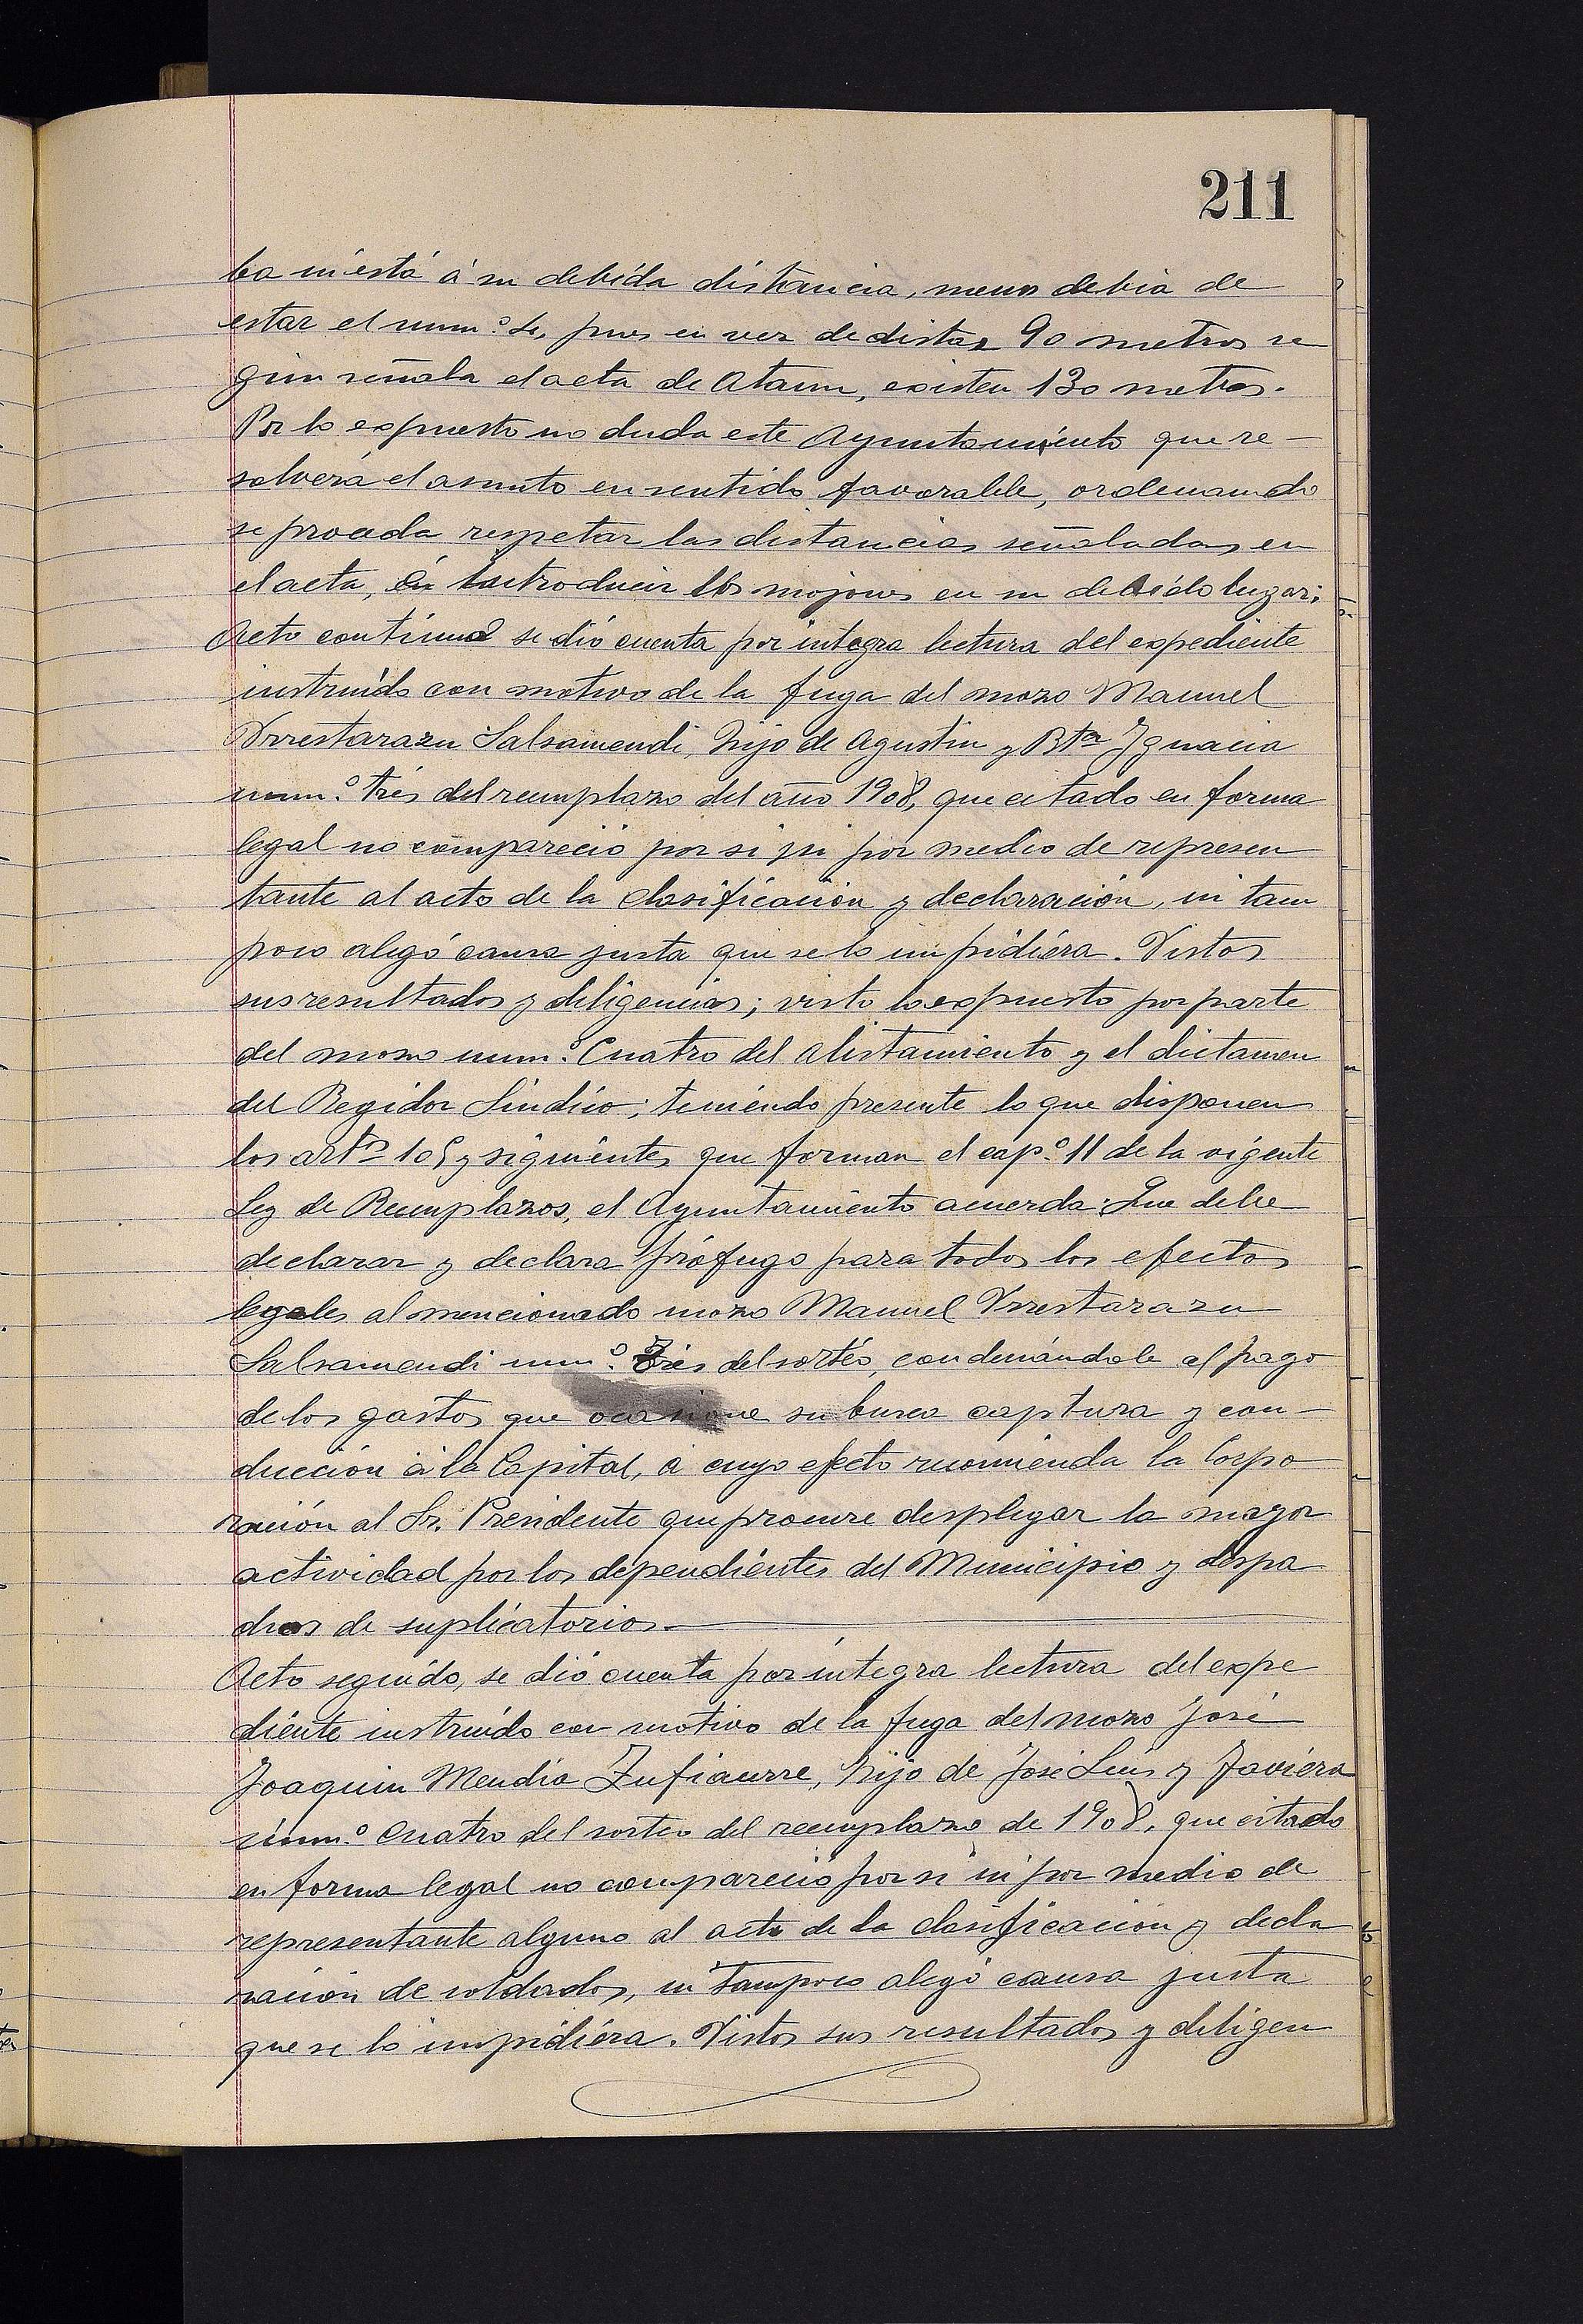 211
ba ni está á su debida distancia, menos debia de
estar el num.º 4, pues en vez de distar 90 metros se
gún señala el acta de Ataun, existen 130 metros.
Por lo expuesto no duda este Ayuntamiento que re-
solverá el asunto en sentido favorable, ordenando
se proceda respetar las distancias señaladas en
el acta, é introducir los mojones en su debido lugar;
Acto continuo se dió cuenta por integra lectura del expediente
instruido con motivo de la fuga del mozo Manuel
Yrrestarazu Salsamendi, hijo de Agustin y Bta Ygnacia
num.º trés del reemplazo del año 1908, que citado en forma
legal no compareció por si ni por medio de represen
tante al acto de la clasificación y declaración, ni tam
poco alegó causa justa que se lo impidiéra. Vistos
sus resultados y diligencias; visto lo expuesto por parte
del mozo num.º Cuatro del alistamiento y el dictamen
del Regidor Sindico; teniéndo presente lo que disponen
los artos 105 y siguiéntes que forman el cap.º 11 de la vigente
Ley de Reemplazos, el Ayuntamiento acuerda: Que debe
declarar y declara prófugo para todos los efectos
legales al mencionado mozo Manuel Yrrestarazu
Salsamendi num.º Trés del sortéo, condenándole al pago
de los gastos que ocasione su busca captura y con-
ducción á la Capital, á cuyo efecto recomienda la Corpo
ración al Sr. Presidente que procure desplegar la mayor
actividad por los dependiéntes del Municipio y despa
chos de suplicatorios.
Acto seguido, se dió cuenta por integra lectura del expe
diénte instruido con motivo de la fuga del mozo José
Joaquin Mendia Zufiaurre, hijo de José Luis y Javiéra
num.º cuatro del sorteo del reemplazo de 1908, que citado
en forma legal no compareció por si ni por medio de
representante alguno al acto de la clasificación y decla
ración de soldados, ni tampoco alegó causa justa
que se lo impidiéra. Vistos sus resultados y diligen